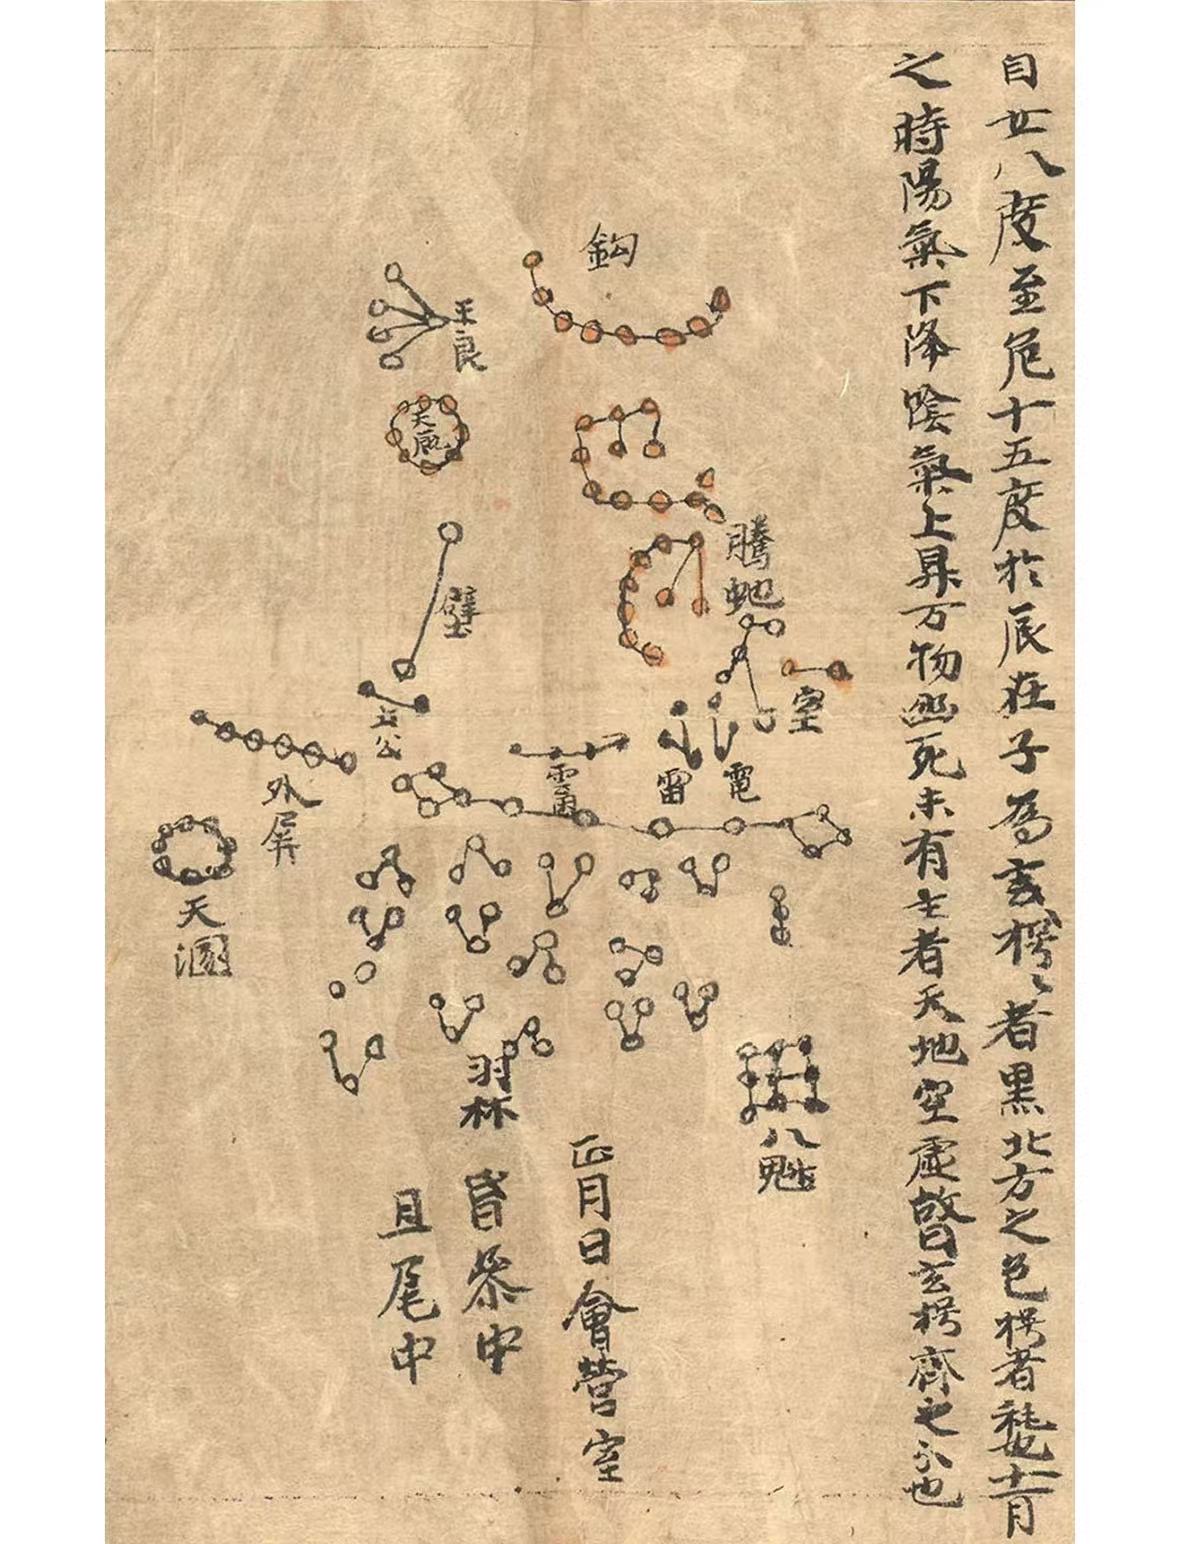 自廿八度至危十五度於辰在子為玄枵〻者黑北方之色枵者耗也十一月
之時陽氣下降陰氣上昇万物幽死未有生者天地空虛故曰玄枵齊之分也
鈎
王良
天厩
騰虵
壁
室
土公
外屏
雷
電
天溷
羽林
八魁
正月日會營室
昏參中
旦尾中